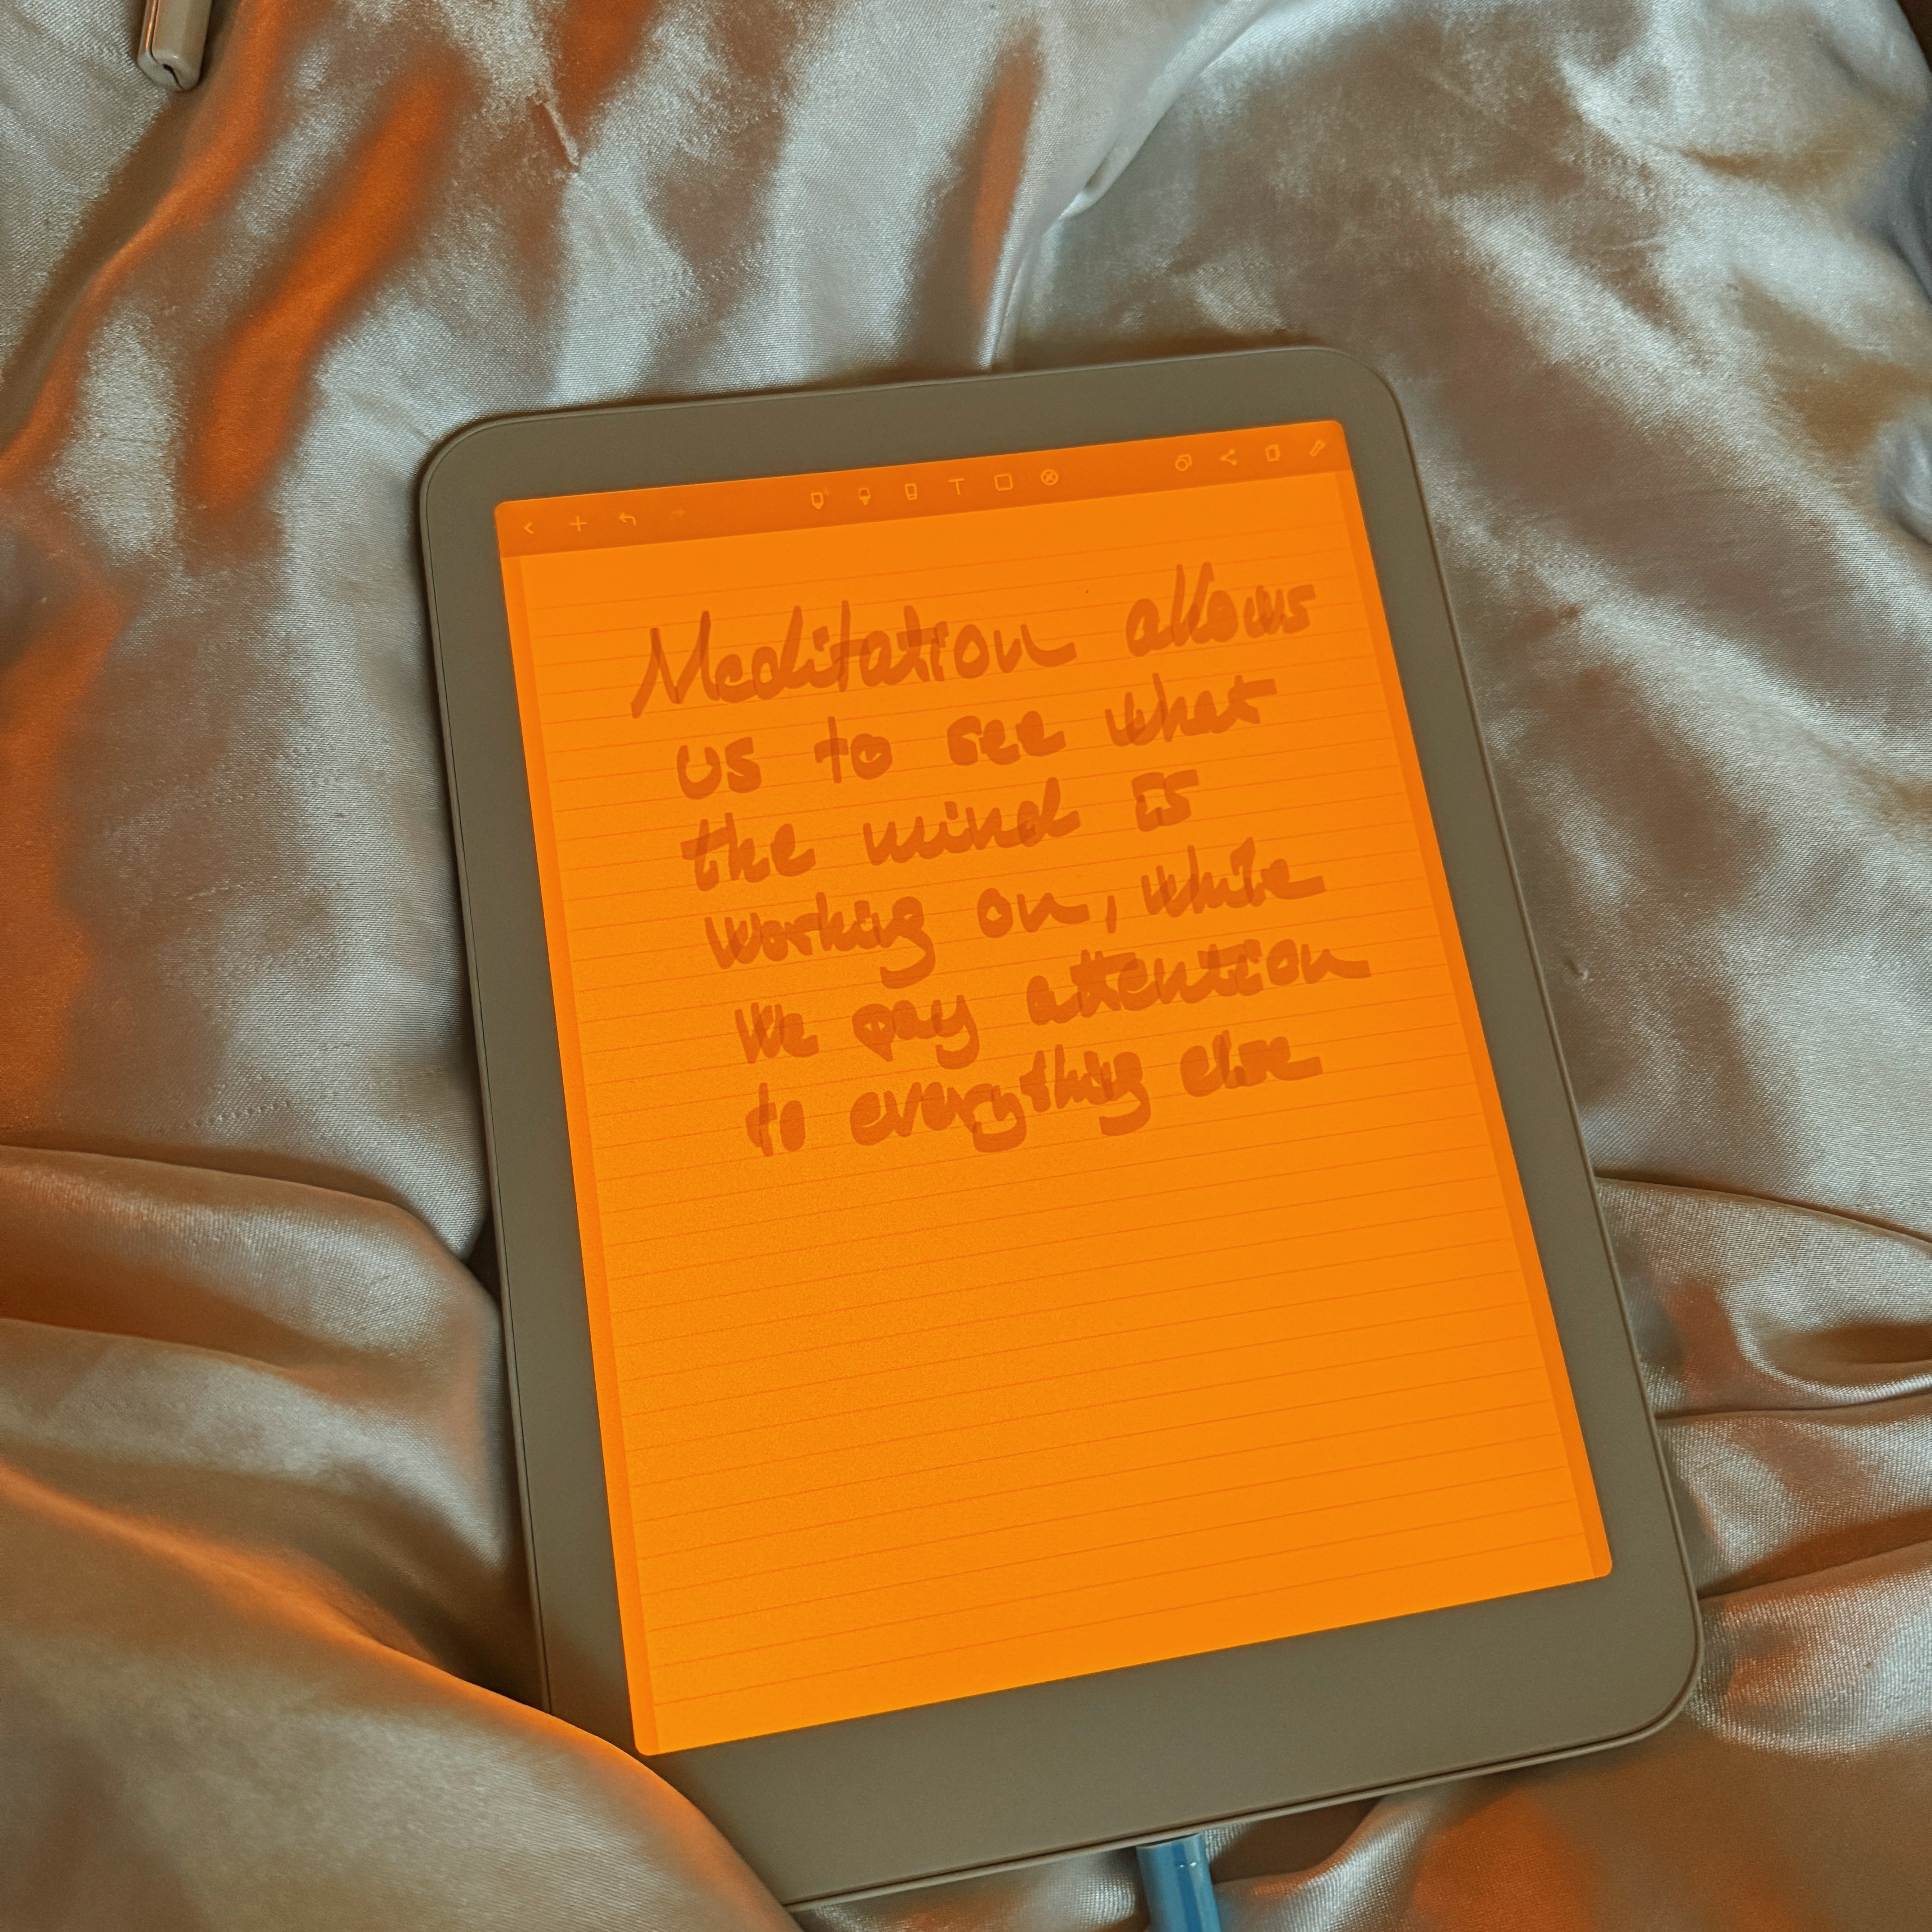 Meditation allows
us to see what
the mind is
working on, while
we pay attention
to everything else